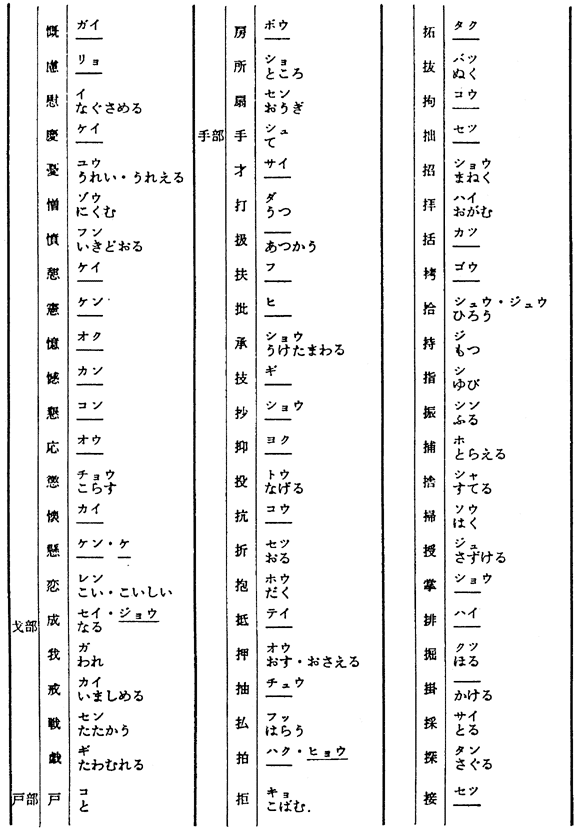 慨 ガイ
慮 リョ
慰 イ
なぐさめる
慶 ケイ
憂 ユウ
うれい・うれえる
憎 ゾウ
にくむ
憤 フン
いきどおる
憩 ケイ
憲 ケン
憶 オク
憾 カン
懇 コン
応 オウ
懲 チョウ
こらす
懐 カイ
懸 ケン・ケ
恋 レン
こい・こいしい
戈部 成 セイ・ジョウ
なる
我 ガ
われ
戒 カイ
いましめる
戦 セン
たたかう
戯 ギ
たわむれる
戸部 戸 コ
と
房 ボウ
所 ショ
ところ
扇 セン
おうぎ
手部 手 シュ
て
才 サイ
打 ダ
うつ
扱
あつかう
扶 フ
批 ヒ
承 ショウ
うけたまわる
技 ギ
抄 ショウ
抑 ヨク
投 トウ
なげる
抗 コウ
折 セツ
おる
抱 ホウ
だく
抵 テイ
押 オウ
おす・おさえる
抽 チュウ
払 フツ
はらう
拍 ハク・ヒョウ
拒 キョ
こばむ
拓 タク
抜 バツ
ぬく
拘 コウ
拙 セツ
招 ショウ
まねく
拝 ハイ
おがむ
括 カツ
拷 ゴウ
拾 シュウ・ジュウ
ひろう
持 ジ
もつ
指 シ
ゆび
振 シン
ふる
捕 ホ
とらえる
捨 シャ
すてる
掃 ソウ
はく
授 ジュ
さずける
掌 ショウ
排 ハイ
掘 クツ
ほる
掛
かける
採 サイ
とる
探 タン
さぐる
接 セツ